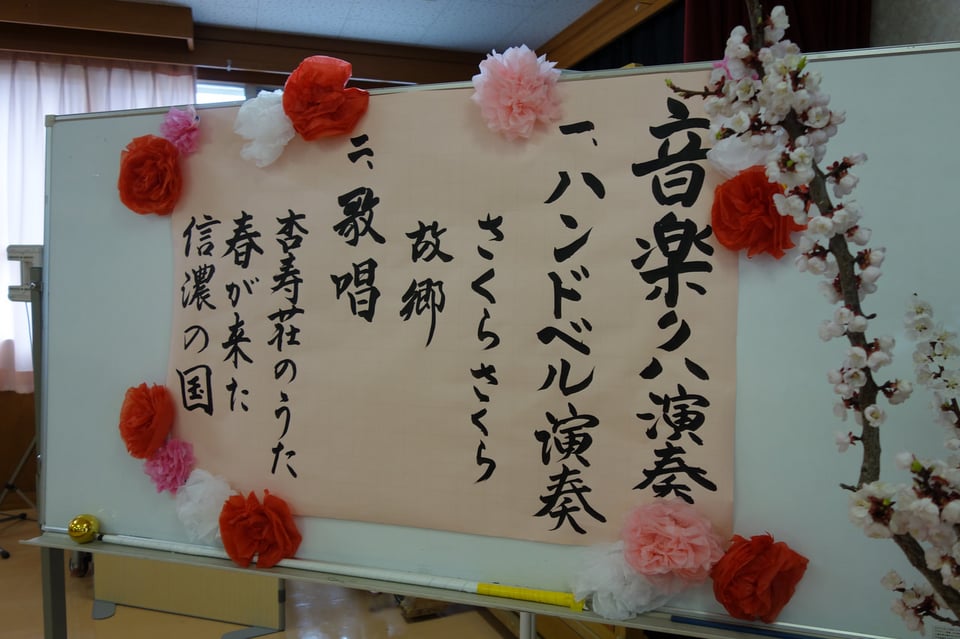 音楽クハ演奏
一、ハンドベル演奏
さくらさくら
故郷
二、歌唱
杏寿荘のうた
春が来た
信濃の国